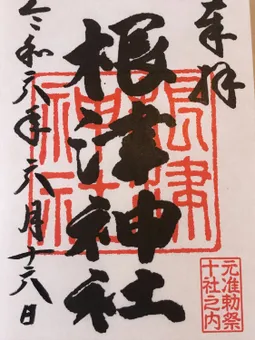 奉拝
根津神社
根津神社
元准勅祭
十社之内
令和六年六月十六日